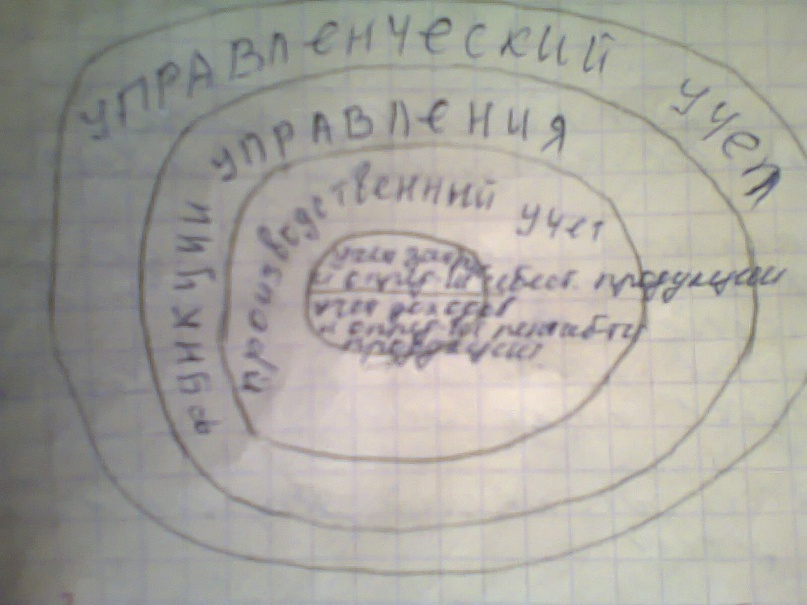 УПРАВЛЕНЧЕСКИЙ УЧЕТ
ФУНКЦИИ УПРАВЛЕНИЯ
ПРОИЗВОДСТВЕННЫЙ УЧЕТ
учет затр.
и опред-ия себест. продукции
учет доходов
и опред-ия
продукции